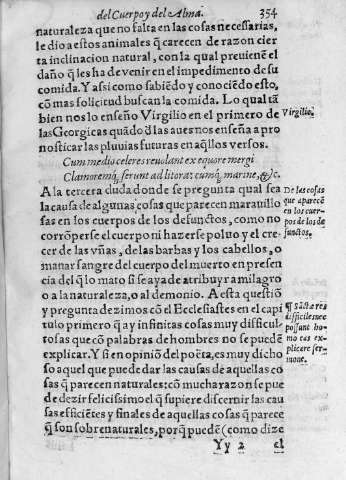 del Cuerpo y del Alma. 354
naturaleza que no falta en las cosas necessarias,
le dio a estos animales q̃ carecen de razon cier
ta inclinacion natural, con la qual preuienẽ el
daño q̃ les ha de venir en el impedimento de su
comida. Y assi como sabiẽdo y conociẽdo esto,
cõ mas solicitud buscan la comida. Lo qual tã
bien nos lo enseño Virgilio en el primero de
las Georgicas quãdo d̃ las aues nos enseña a pro
nosticar las pluuias futuras en aq̃llos versos.
Virgilio.
Cum medio celeres reuolant ex equore mergi
Clamoremq̃; ferunt ad litora: cumq̃; marine, &c.
A la tercera duda donde se pregunta qual sea
la causa de algunas cosas que parecen marauillo
sas en los cuerpos de los defunctos, como no
corrõperse el cuerpo ni hazerse poluo y el cre
cer de las vñas, de las barbas y los cabellos, o
manar sangre del cuerpo del muerto en presen
cia del q̃ lo mato si se aya de atribuyr a milagro
o a la naturaleza, o al demonio. A esta questiõ
y pregunta dezimos cõ el Ecclesiastes en el capi
tulo primero q̃ ay infinitas cosas muy dificul
tosas que cõ palabras de hombres no se puedẽ
explicar. Y si en opiniõ del poëta, es muy dicho
so aquel que puede dar las causas de aquellas co
sas q̃ parecen naturales: cõ mucha razon se pue
de dezir felicissimo el q̃ supiere discernir las cau
sas efficiẽtes y finales de aquellas cosas q̃ parece
q̃ son sobrenaturales, por q̃ puedẽ (como dize
De las cosas
que aparecẽ
en los cuer-
pos de los de
functos.
¶ Sũctæ res
difficiles nec
possunt ho-
mo eas ex-
plicere ser-
mone.
Yy 2 el